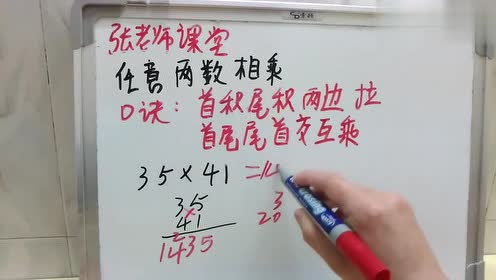 张老师课堂
任意两数相乘
口诀：首积尾积两边拉
首尾尾首交互乘
35×41=14
35
41
1435
2
3
20